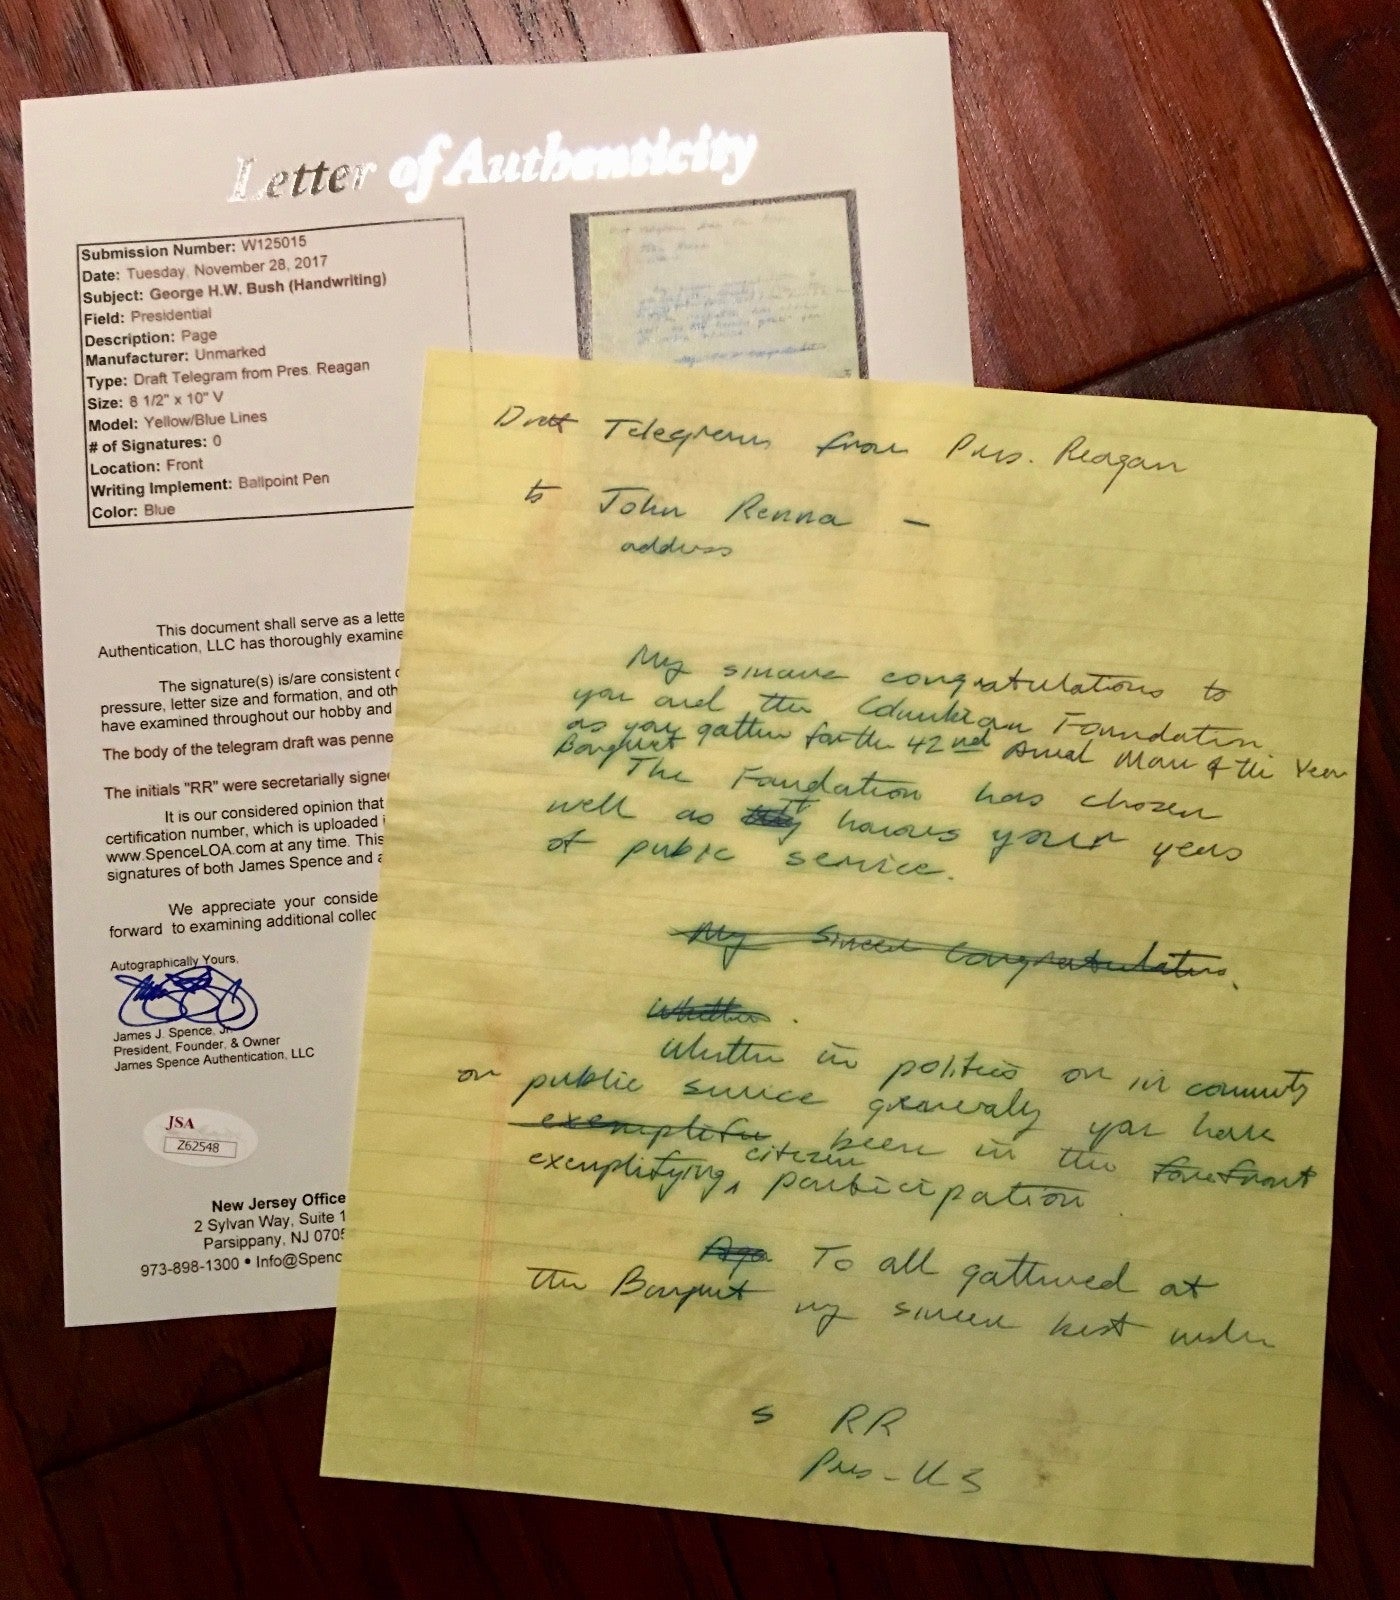 Letter of Authenticity
Submission Number: W125015
Date: Tuesday, November 28, 2017
Subject: George H.W. Bush (Handwriting)
Field: Presidential
Description: Page
Manufacturer: Unmarked
Type: Draft Telegram from Pres. Reagan
Size: 8 1/2" x 10" V
Model: Yellow/Blue Lines
# of Signatures: 0
Location: Front
Writing Implement: Ballpoint Pen
Color: Blue
This document shall serve as a lette
Authentication, LLC has thoroughly examine
The signature(s) is/are consistent
pressure, letter size and formation, and oth
have examined throughout our hobby and
The body of the telegram draft was penne
The initials "RR" were secretarially signe
It is our considered opinion that
certification number, which is uploaded
www.SpenceLOA.com at any time. This
signatures of both James Spence and a
We appreciate your conside
forward to examining additional collec
Autographically Yours,
James J. Spence, Jr.
President, Founder, & Owner
James Spence Authentication, LLC
JSA
Z62548
New Jersey Office
2 Sylvan Way, Suite 1
Parsippany, NJ 0705
973-898-1300 • Info@Spenc
Draft Telegram from Pres. Reagan
to John Renna —
address
My sincere congratulations to
you and the Columbian Foundation
as you gather for the 42nd Annual Man of the Year
Banquet
The Foundation has chosen
well as it honors your years
of public service.
My Sincere Congratulations.
Whether.
Whether in politics or in community
or public service generally you have
exemplified been in the forefront
exemplifying citizen participation
Aga To all gathered at
the Banquet my sincere best wishes
s RR
Pres - US